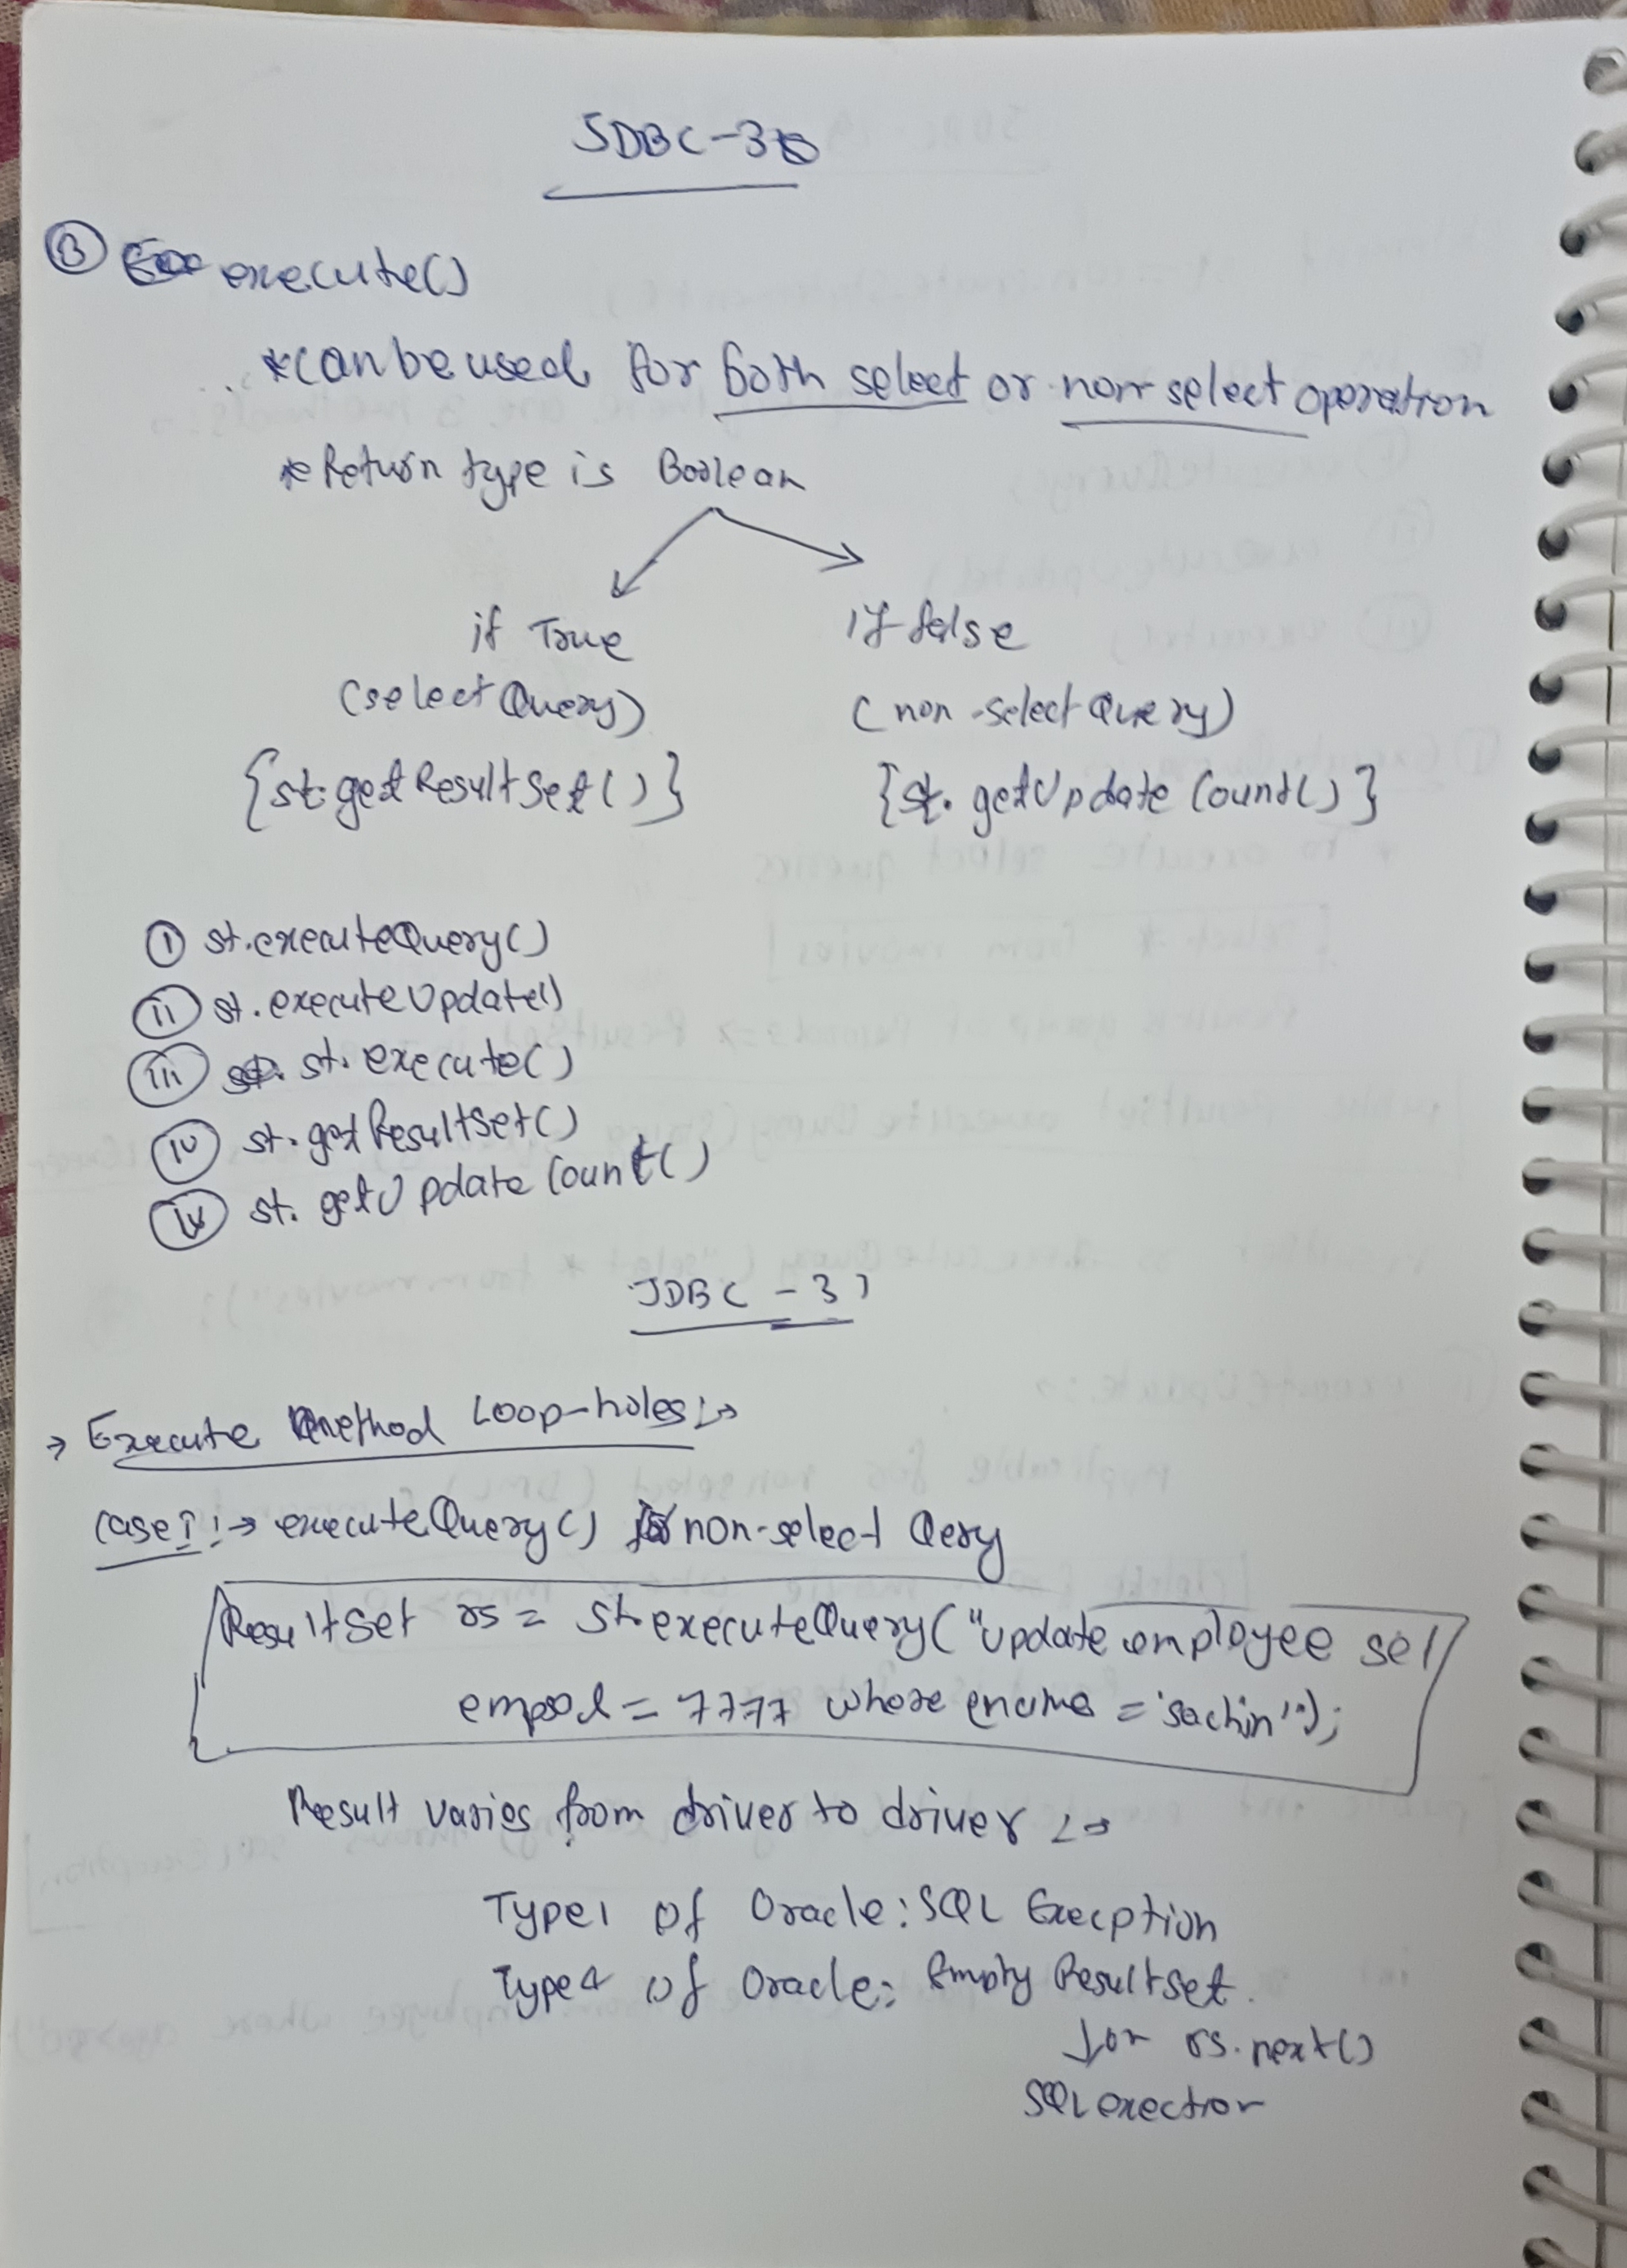 JDBC-30
③ execute()
*can be used for both select or non select operation
* Return type is Boolean
if True if false
(select Query) (non-select Query)
{st. getResultSet()} {st. getUpdate Count()}
① st.executeQuery()
ⓘⓘ st. executeUpdate()
ⓘⓘⓘ st. execute()
iv st. getResultSet()
st. getUpdate Count()
JDBC - 31
→ Execute Method Loop-holes :→
case I :→ executeQuery() for non-select Qery
ResultSet rs = st.executeQuery("update employee set
= 7777 where ename = 'sachin'");
Result varies from driver to driver :→
Type1 of Oracle: SQL Execption
Type4 of Oracle: Empty ResultSet.
↓ on rs. next()
SQL